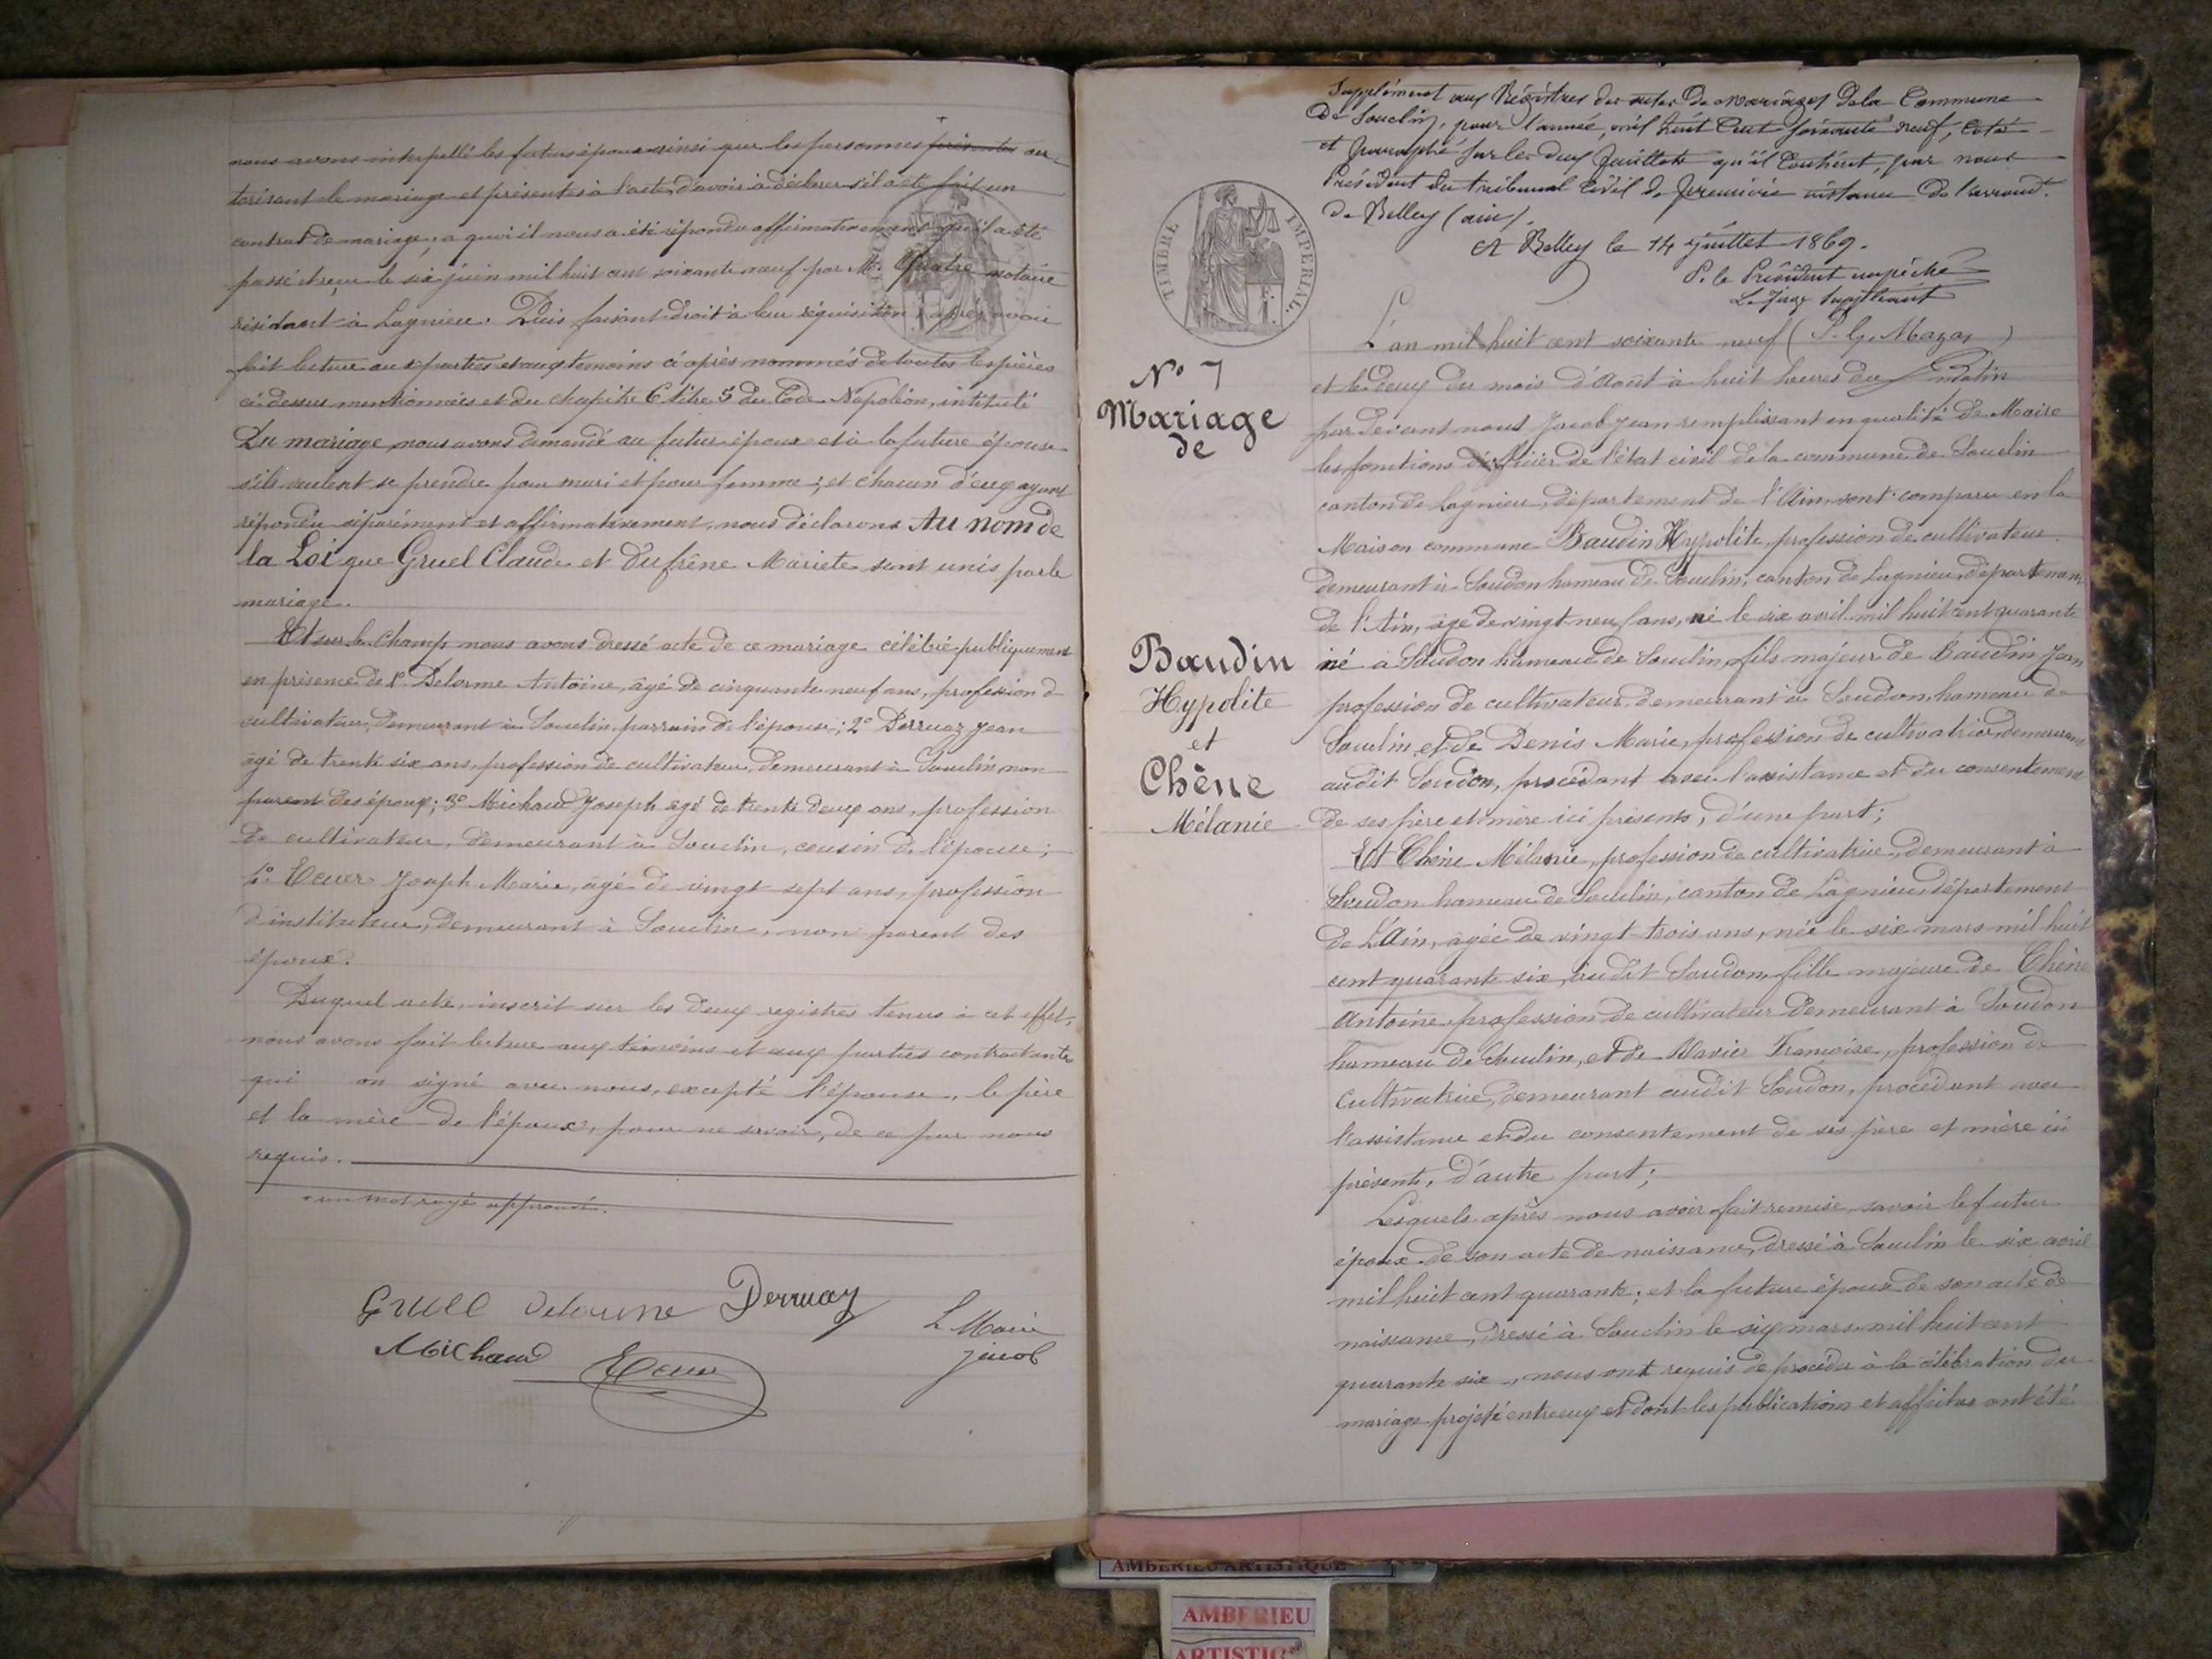 nous avons interpellé les futurs époux ainsi que les personnes présentes au-
torisant le mariage et présentes à l'acte, d'avoir à déclarer s'il a été fait un
contrat de mariage, a quoi il nous a été répondu affirmativement qu'il a été
passé et reçu le six juin mil huit cent soixante neuf par Me Quatre notaire
résidant à Lagnieu. Puis faisant droit à leur réquisition, après avoir
fait lecture aux parties et aux témoins ci après nommés de toutes les pièces
ci-dessus mentionnées et du chapitre 6 titre 5 du Code Napoléon, intitulé
Du mariage, nous avons demandé au futur époux et à la future épouse
s'ils veulent se prendre pour mari et pour femme ; et chacun d'eux ayant
répondu séparément et affirmativement, nous déclarons Au nom de
la Loi que Gruel Claude et Dufrêne Mariete sont unis par le
mariage.
Et sur le champ nous avons dressé acte de ce mariage célébré publiquement
en présence de 1° Delorme Antoine, âgé de cinquante neuf ans, profession de
cultivateur, demeurant à Souclin, parrain de l'épouse ; 2° Derruaz Jean
âgé de trente six ans, profession de cultivateur, demeurant à Souclin non
parent des époux ; 3° Michaud Joseph âgé de trente deux ans, profession
de cultivateur, demeurant à Souclin, cousin de l'épouse ;
4° Joseph Marie, âgé de vingt sept ans, profession
d'instituteur, demeurant à Souclin, non parent des
époux.
Duquel acte, inscrit sur les deux registres tenus à cet effet,
nous avons fait lecture aux témoins et aux parties contractantes
qui on signé avec nous, excepté l'épouse, le père
et la mère de l'époux, pour ne savoir, de ce par nous
requis.
+ un mot rayé approuvé.
Gruel Delorme Derruaz
L Maire
Michaud
Jacob
Supplément aux Régistres des actes de mariages de la Commune
de Souclin, pour l'année mil huit Cent soixante neuf, Coté
et paraphé sur les deux feuillets qu'il Contient, par nous
Président du tribunal Civil de première instance de l'arrondt
de Belley (ain).
A Belley le 14 Juillet 1869.
P. le Président empêché
Le Juge Suppléant
TIMBRE IMPÉRIAL.
L'an mil huit cent soixante neuf
et le deux du mois d'Août à huit heures du matin
N° 7
Mariage
de
par devant nous Jacob Jean remplissant en qualité de Maire
les fonctions d'officier de l'état civil de la commune de Souclin
canton de Lagnieu, département de l'Ain, sont comparu en la
Maison commune Baudin Hypolite, profession de cultivateur.
demeurant à Soudon hameau de Souclin, canton de Lagnieu, département
de l'Ain, âgé de vingt neuf ans, né le six avril mil huit cent quarante
Baudin
Hypolite
et
Chêne
Mélanie
né à Soudon hameau de Souclin, fils majeur de Baudin Jean
profession de cultivateur, demeurant à Soudon, hameau de
Souclin, et de Denis Marie, profession de cultivatrice, demeurant
audit Soudon, procédant avec l'assistance et du consentement
de ses père et mère ici présents, d'une part ;
Et Chêne Mélanie, profession de cultivatrice, demeurant à
Soudon hameau de Souclin, canton de Lagnieu, département
de L'Ain, âgée de vingt-trois ans, née le six mars mil huit
cent quarante six, audit Soudon, fille majeure de Chêne
Antoine, profession de cultivateur demeurant à Soudon
hameau de Souclin, et de Françoise, profession de
cultivatrice, demeurant audit Soudon, procédant avec
l'assistance et du consentement de ses père et mère ici
présents, d'autre part ;
Lesquels après nous avoir fait remise, savoir le futur
époux de son acte de naissance, dressé à Souclin le six avril
mil huit cent quarante ; et la future épouse de son acte de
naissance, dressé à Souclin le six mars mil huit cent
quarante six, nous ont requis de procéder à la célébration du
mariage projeté entre eux et dont les publications et affiches ont été
AMBERIEU ARTISTIQUE
AMBERIEU
ARTISTIQUE